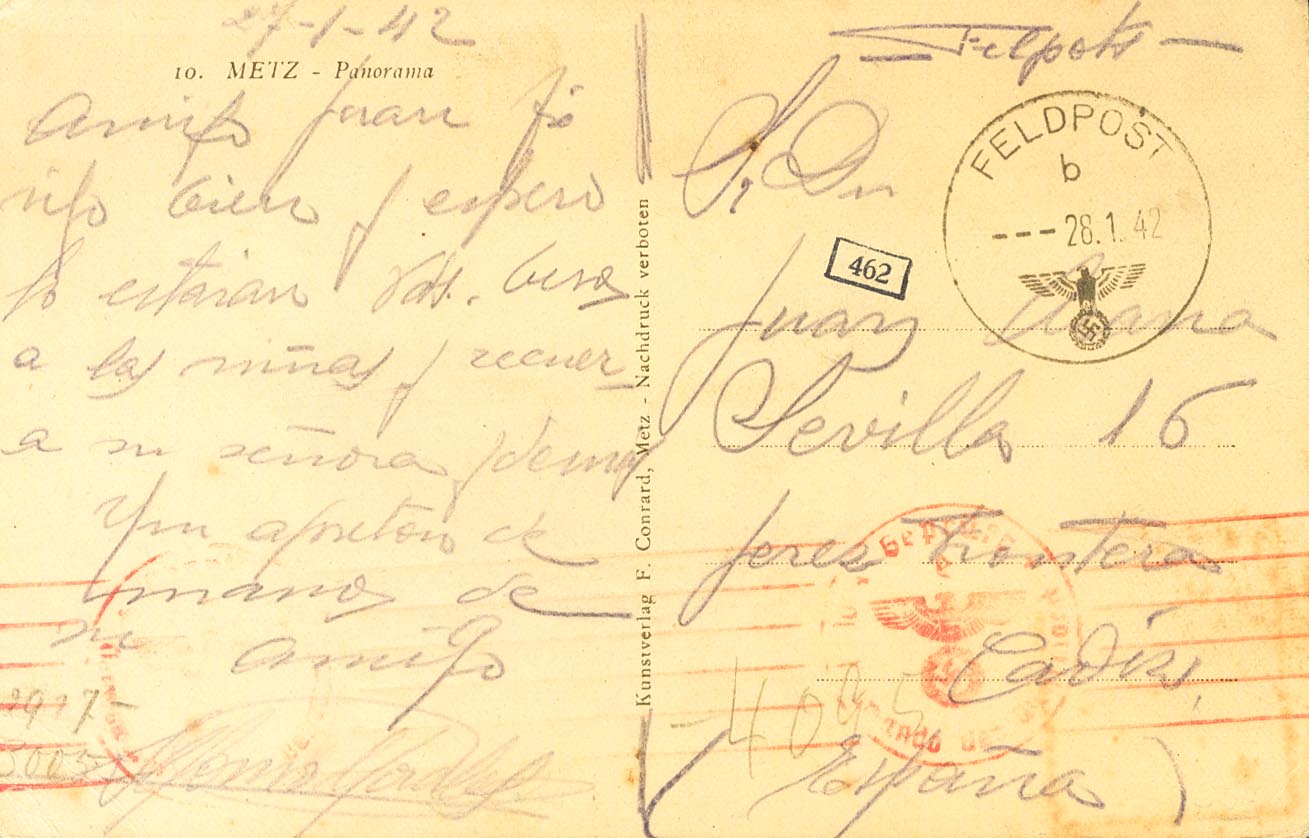 27-1-42
10. METZ - Panorama
Amigo Juan yo
sigo bien y espero
lo estarán Vds. besos
a las niñas y recuer
a su señora y demás
Y un apretón de
manos de
su amigo
2917-
Kunstverlag F. Conrard, Metz - Nachdruck verboten
Felpots
FELDPOST
b
---28.1.42
Sr Dn
462
Juan
Sevilla 16
Jerez Frontera
Cadiz,
4095
(España)